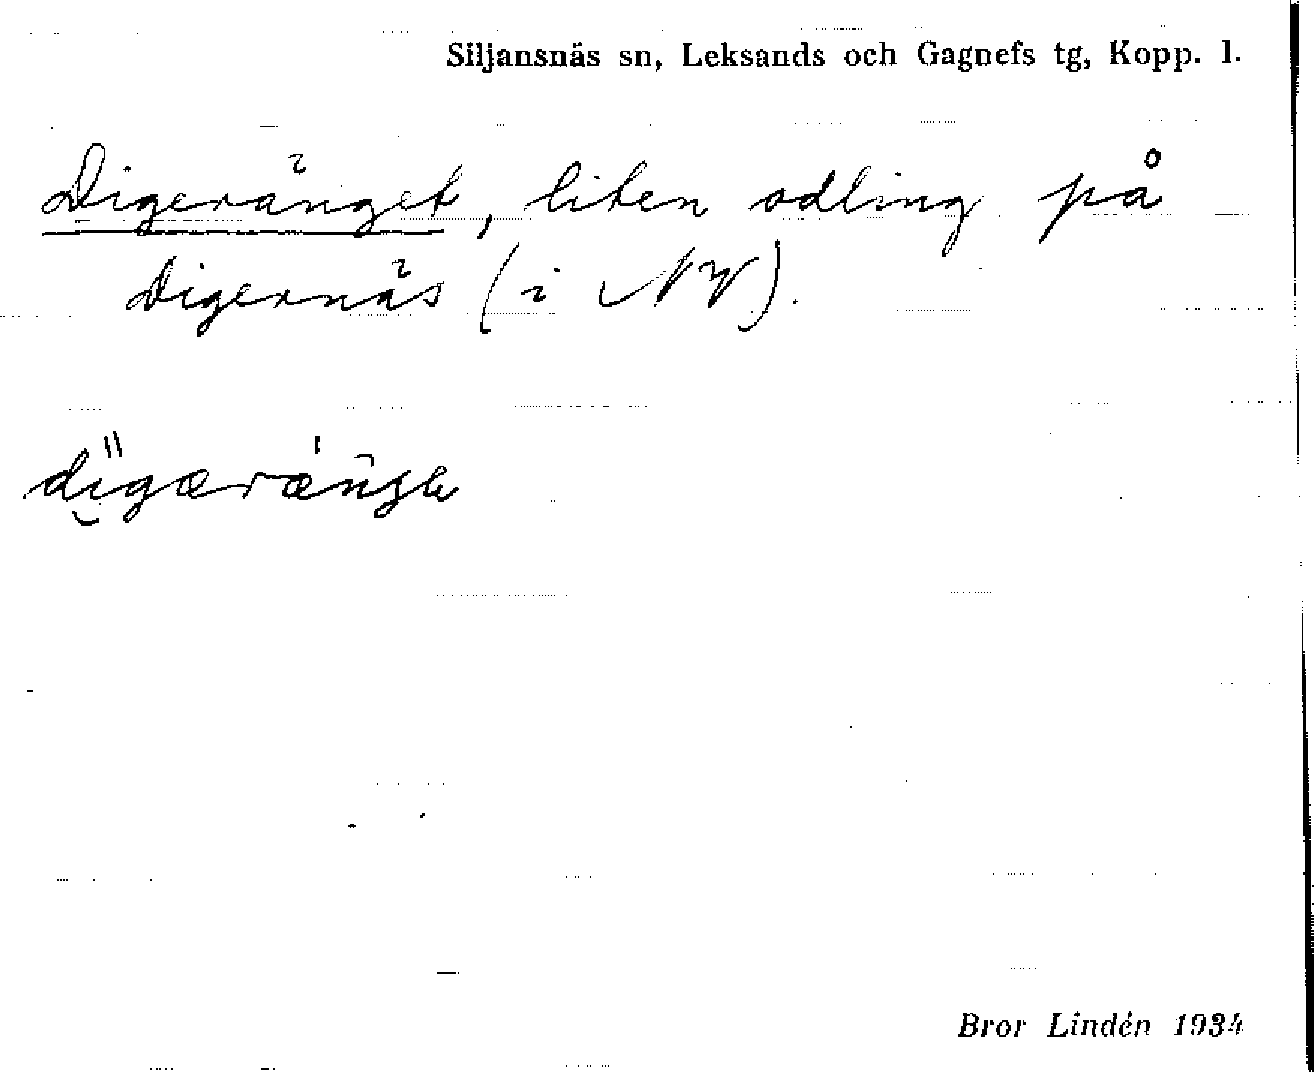 Siljansnäs sn, Leksands och Gagnefs tg, Kopp. l.
Digeränget, liten odling på
Digernäs (i NV).
Bror Lindén 1934